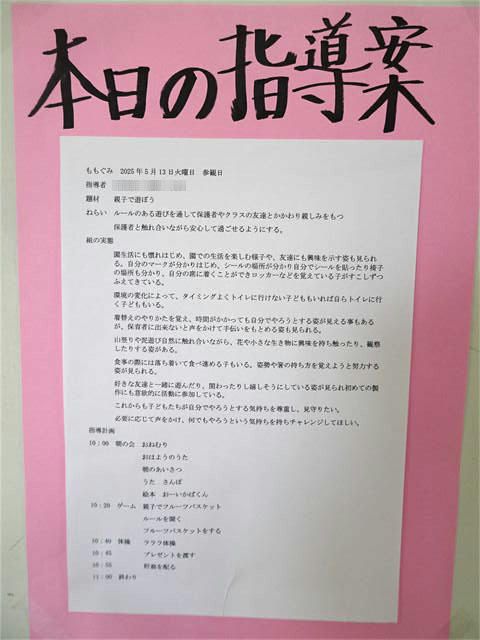 本日の指導案
ももぐみ 2025年5月13日火曜日 参観日
指導者
題材 親子で遊ぼう
ねらい ルールのある遊びを通して保護者やクラスの友達とかかわり親しみをもつ
保護者と触れ合いながら安心して過ごせるようにする。
組の実態
園生活にも慣れはじめ、園での生活を楽しむ様子や、友達にも興味を示す姿も見られ
る。自分のマークが分かりはじめ、シールの場所が分かり自分でシールを貼ったり椅子
の場所も分かり、自分の席に着くことができロッカーなどを覚えている子がすこしずつ
ふえてきている。
環境の変化によって、タイミングよくトイレに行けない子どももいれば自らトイレに行
く子どももいる。
着替えのやりかたを覚え、時間がかかっても自分でやろうとする姿が見える事もある
が、保育者に出来ないと声をかけて手伝いをもとめる姿も見られる。
山登りや泥遊び自然に触れ合いながら、花や小さな生き物に興味を持ち触ったり、観察
したりする姿がある。
食事の際には落ち着いて食べ進める子もいる。姿勢や箸の持ち方を覚えようと努力する
姿が見られる。
好きな友達と一緒に遊んだり、関わったりし嬉しそうにしている姿が見られ初めての製
作にも意欲的に活動に参加している。
これからも子どもたちが自分でやろうとする気持ちを尊重し、見守りたい。
必要に応じて声をかけ、何でもやろうという気持ちを持ちチャレンジしてほしい。
指導計画
10:00 朝の会 おねむり
おはようのうた
朝のあいさつ
うた さんぽ
絵本 おーいかばくん
10:20 ゲーム 親子でフルーツバスケット
ルールを聞く
フルーツバスケットをする
10:40 体操 ラララ体操
10:45 プレゼントを渡す
10:55 貯金を配る
11:00 終わり